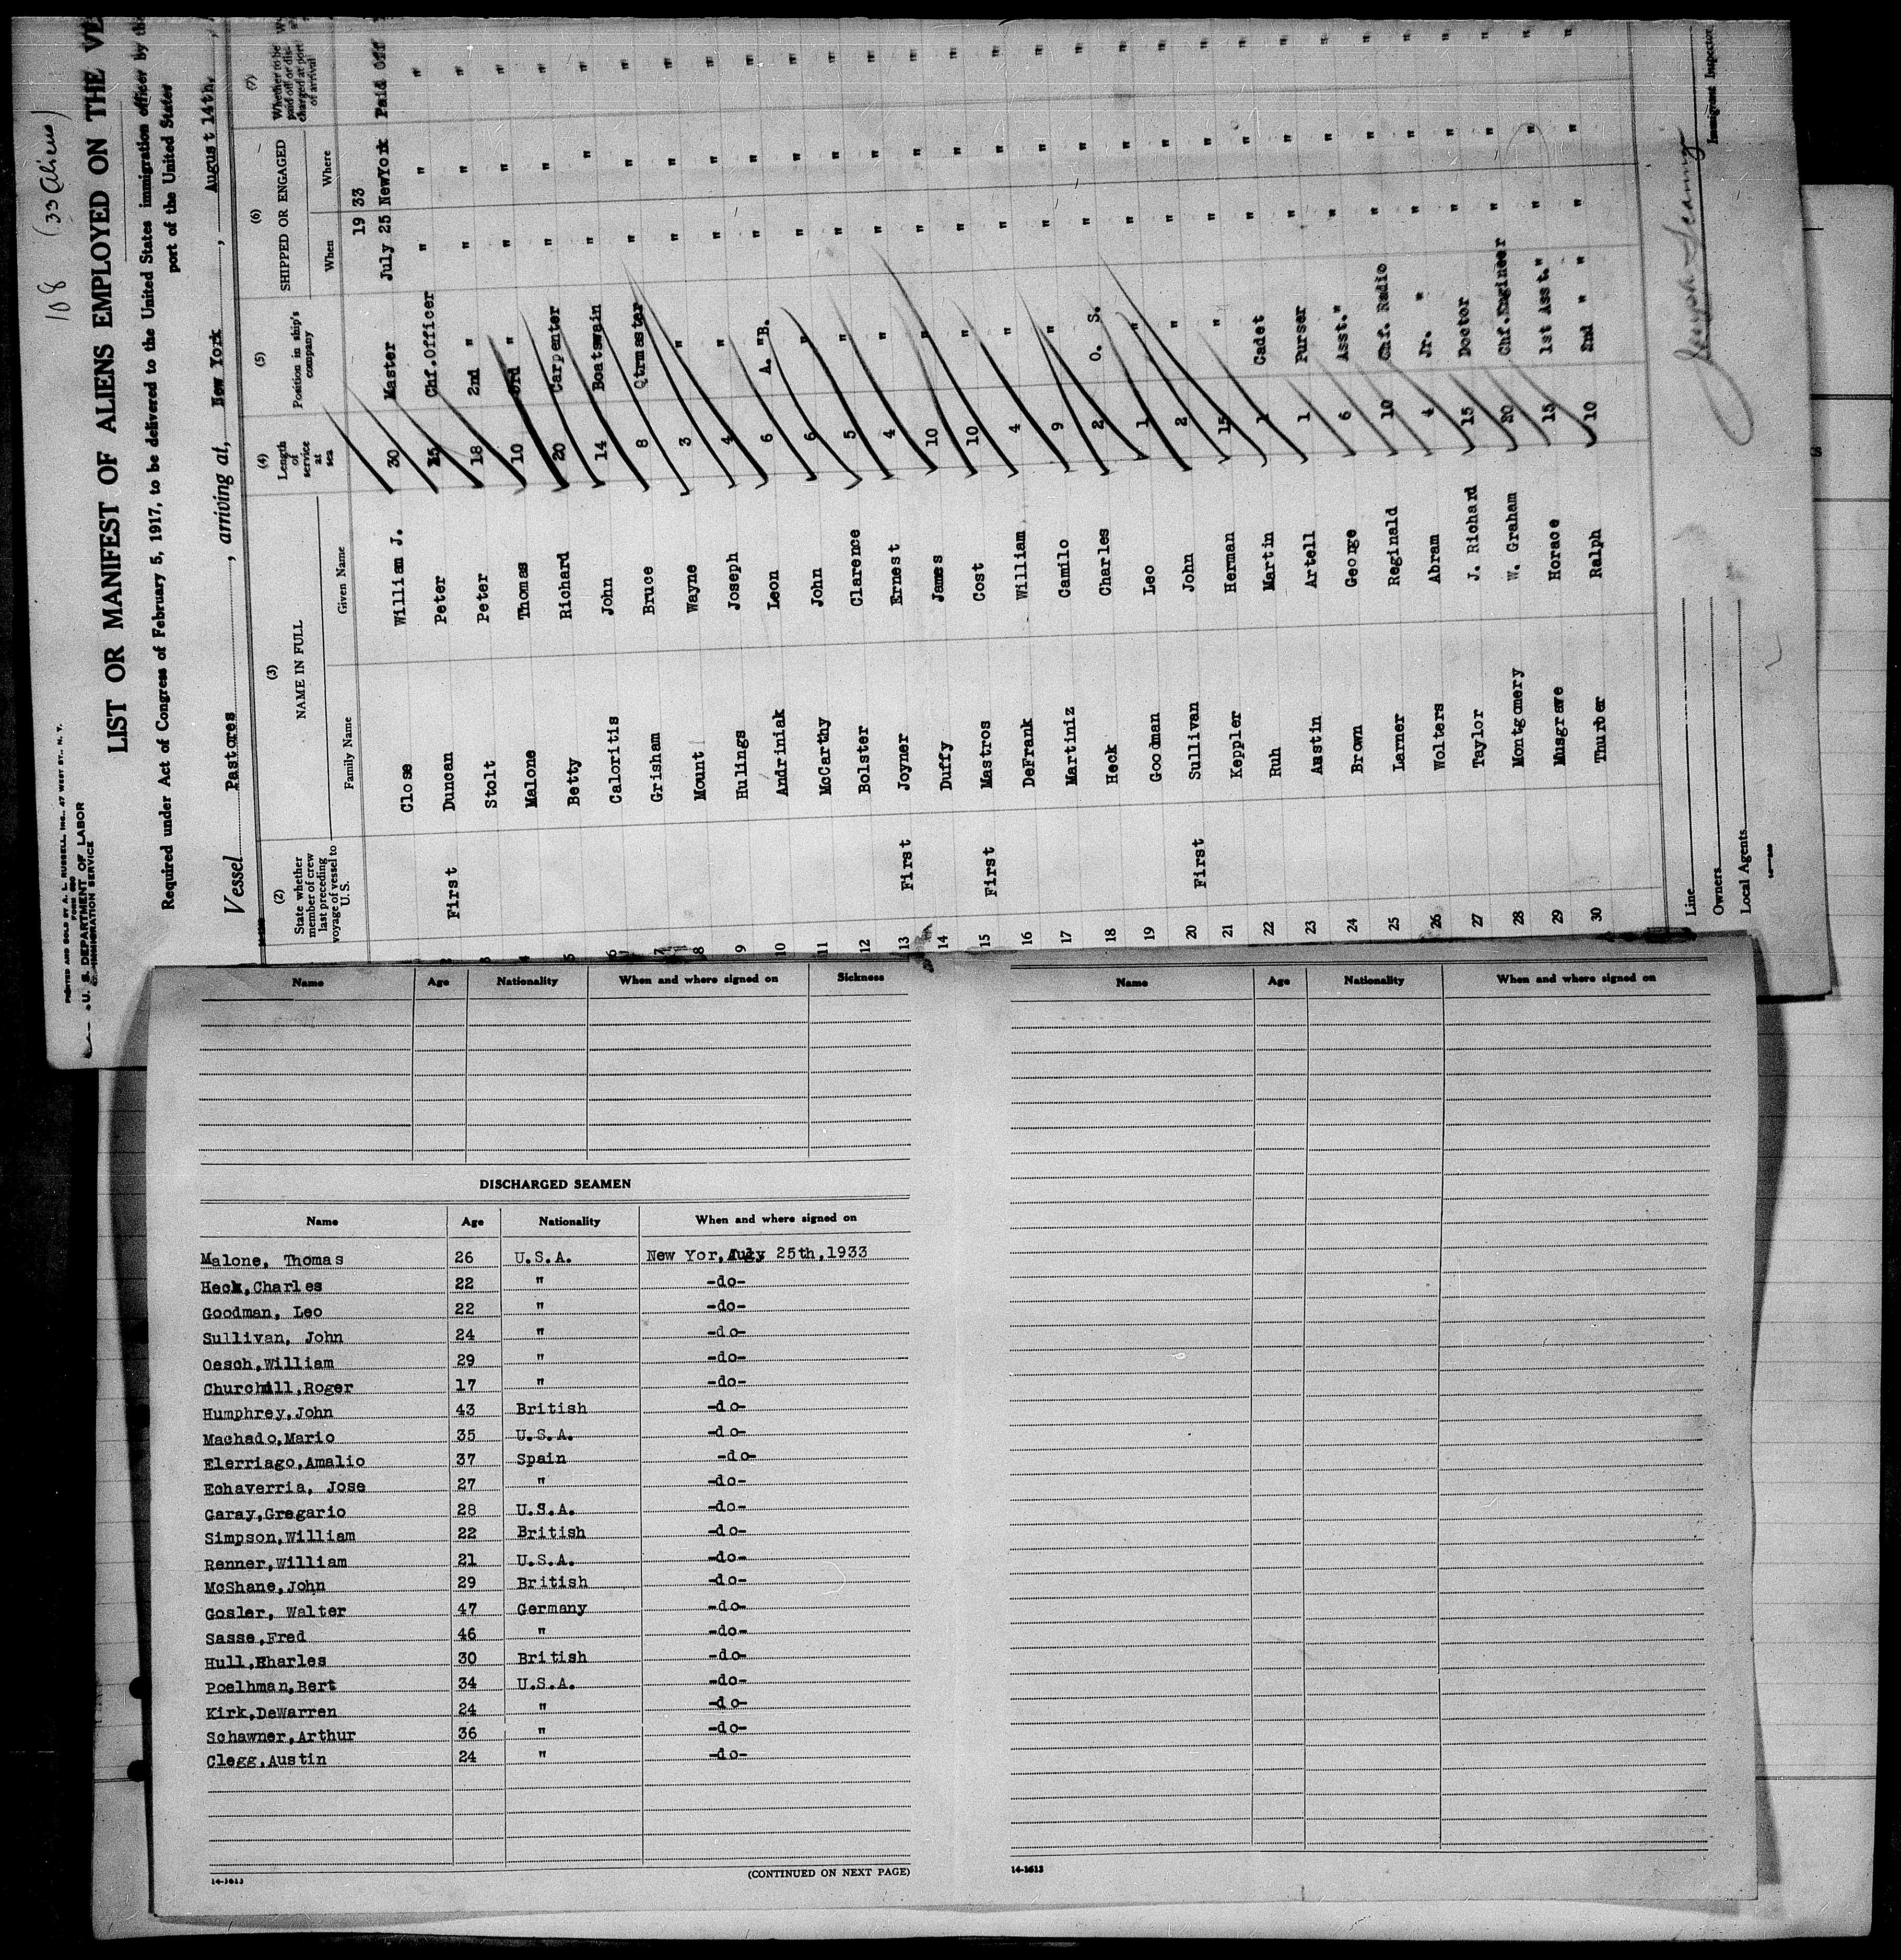 108 (33 Aliens)
PRINTED AND SOLD BY A. L. RUSSELL, INC., 47 WEST ST., N. Y.
U. S. DEPARTMENT OF LABOR
IMMIGRATION SERVICE
LIST OR MANIFEST OF ALIENS EMPLOYED ON THE VE
Required under Act of Congress of February 5, 1917, to be delivered to the United States immigration officer by the
port of the United States
Vessel Pastores, arriving at, New York, August 14th,
(2) (3) (4) (5) (6) (7)
State whether member of crew last preceding voyage of vessel to U. S. NAME IN FULL Length of service at sea Position in ship's company SHIPPED OR ENGAGED Whether to be paid off or discharged at port of arrival
Family Name Given Name When Where
19 33
Close William J. 30 Master July 25 NewYork Paid Off
2 First Duncan Peter 25 Chf.Officer " " "
3 Stolt Peter 18 2nd " " " "
4 Malone Thomas 10 3rd " " " "
5 Betty Richard 20 Carpenter " " "
6 Caloritis John 14 Boatswain " " "
7 Grisham Bruce 8 Qtrmaster " " "
8 Mount Wayne 3 " " " "
9 Hulings Joseph 4 " " " "
10 Andriniak Leon 6 A. "B. " " "
11 McCarthy John 6 " " " "
12 Bolster Clarence 5 " " " "
13 First Joyner Ernest 4 " " " "
14 Duffy James 10 " " " "
15 First Mastros Cost 10 " " " "
16 DeFrank William 4 " " " "
17 Martiniz Camilo 9 " " " "
18 Heck Charles 2 O. S. " " "
19 Goodman Leo 1 " " " "
20 First Sullivan John 2 " " " "
21 Keppler Herman 15 " " " "
22 Ruh Martin 1 Cadet " " "
23 Austin Artell 1 Purser " " "
24 Brown George 6 Asst." " " "
25 Larner Reginald 10 Chf. Radio " " "
26 Wolters Abram 4 Jr. " " " "
27 Taylor J. Richard 15 Doctor " " "
28 Montgomery W. Graham 20 Chf.Engineer " " "
29 Musgrave Horace 15 1st Asst." " " "
30 Thurber Ralph 10 2nd " " " " "
Line
Owners
Local Agents
Immigrant Inspector
Name Age Nationality When and where signed on Sickness
DISCHARGED SEAMEN
Name Age Nationality When and where signed on
Malone, Thomas 26 U.S.A. New Yor,July 25th,1933
Heck,Charles 22 " -do-
Goodman, Leo 22 " -do-
Sullivan, John 24 " -do-
Oesch,William 29 " -do-
Churchill,Roger 17 " -do-
Humphrey,John 43 British -do-
Machado,Mario 35 U.S.A. -do-
Elerriago,Amalio 37 Spain -do-
Echaverria, Jose 27 " -do-
Garay,Gregario 28 U.S.A. -do-
Simpson,William 22 British -do-
Renner,William 21 U.S.A. -do-
McShane,John 29 British -do-
Gosler, Walter 47 Germany -do-
Sasse,Fred 46 " -do-
Hull,Eharles 30 British -do-
Poelhman,Bert 34 U.S.A. -do-
Kirk,DeWarren 24 " -do-
Schawner,Arthur 36 " -do-
Clegg,Austin 24 " -do-
(CONTINUED ON NEXT PAGE)
14-1613
Name Age Nationality When and where signed on
14-1613